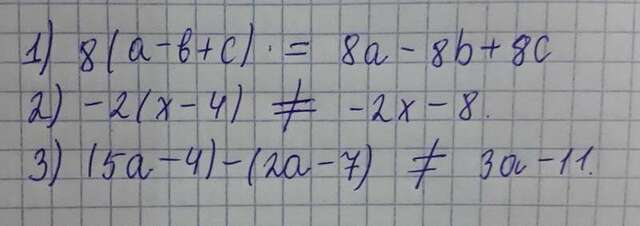 1) 8(a-b+c) · = 8a-8b+8c
2) -2(x-4) ≠ -2x-8.
3) (5a-4)-(2a-7) ≠ 3a-11.